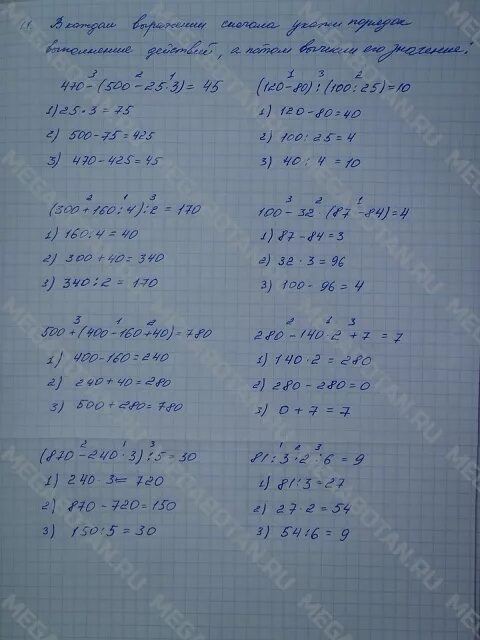 1. В каждом выражении сначала укажи порядок
выполнение действий, а потом вычисли его значение:
3 2 1
470-(500-25·3)=45
1) 25·3=75
2) 500-75=425
3) 470-425=45
1 3 2
(120-80):(100:25)=10
1) 120-80=40
2) 100:25=4
3) 40:4=10
2 1 3
(300+160:4):2=170
1) 160:4=40
2) 300+40=340
3) 340:2=170
3 2 1
100-32·(87-84)=4
1) 87-84=3
2) 32·3=96
3) 100-96=4
3 1 2
500+(400-160+40)=780
1) 400-160=240
2) 240+40=280
3) 500+280=780
2 1 3
280-140·2+7=7
1) 140·2=280
2) 280-280=0
3) 0+7=7
2 1 3
(870-240·3):5=30
1) 240·3=720
2) 870-720=150
3) 150:5=30
1 2 3
81:3·2:6=9
1) 81:3=27
2) 27·2=54
3) 54:6=9
MEGABOTAN.RU